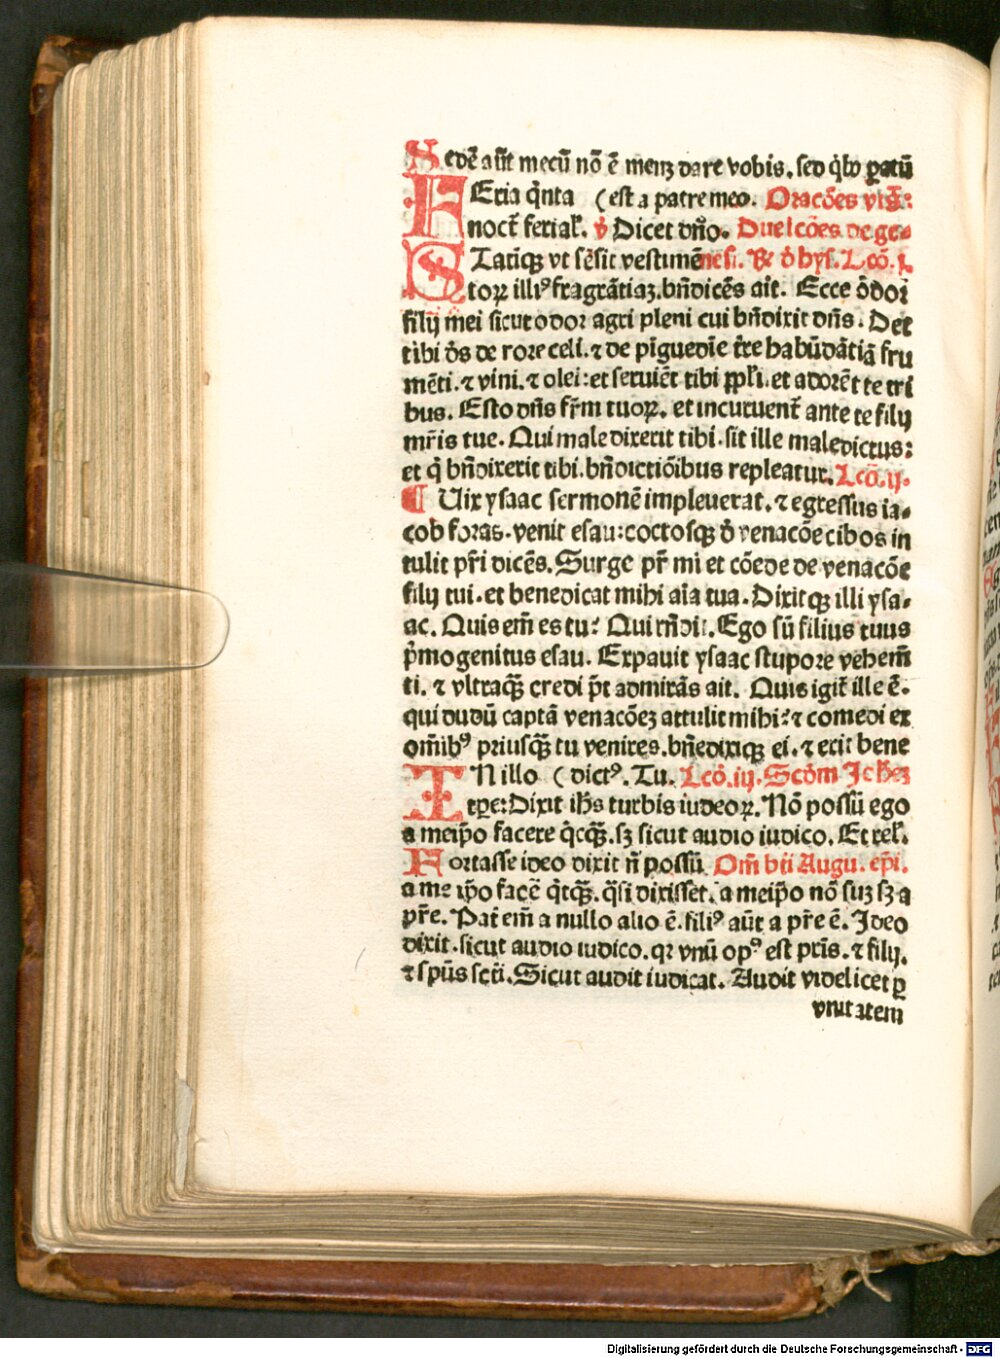 Sedē aūt mecū nō ē meuʒ dare vobis. sed q̇bꝰ ꝑatū
FEria q̇nta (est a patre meo. Oracōes
noct̄ ferial̕. ꝟ Dicet dn̄o. Due lcōes de ge-
STatiqꝫ vt sēsit vestimē nesi. Lcō. i.
torꝝ illiꝰ fragrātiaꝫ. bn̄dicēs ait. Ecce ōdor
filij mei sicut odor agri pleni cui bn̄dixit dn̄s. Det
tibi ds̄ de rore celi. ⁊ de pīguedīe tr̄e habūdātiā fru
mēti. ⁊ vini. ⁊ olei: et seruiēt tibi ppl̕i. et adorēt te tri
bus. Esto dn̄s fr̄m tuorꝝ. et incuruent̄ ante te filij
mr̄is tue. Qui maledixerit tibi. sit ille maledictus:
et q̇ bn̄dixerit tibi. bn̄dictiōibus repleatur. Lcō. ij.
¶ Uix ysaac sermonē impleuerat. ⁊ egressus ia-
cob foras. venit esau: coctosqꝫ d̄ venacōe cibos in
tulit pr̄i dicēs. Surge pr̄ mi et cōede de venacōe
filij tui. et benedicat mihi aīa tua. Dixitqꝫ illi ysa-
ac. Quis em̄ es tu? Qui rn̄dit. Ego sū filius tuus
p̄mogenitus esau. Expauit ysaac stupore vehem̄
ti. ⁊ vltraqꝫ̄ credi pt̄ admirās ait. Quis igit̄ ille ē.
qui dudū captā venacōeʒ attulit mihi? ⁊ comedi ex
om̄ibꝰ priusqꝫ̄ tu venires. bn̄edixiqꝫ ei. ⁊ erit bene
IN illo (dictꝰ. Tu. Lcō. iij. Scd̄m Joh̄eʒ
tꝑe: Dixit ih̄s turbis iudeorꝝ. Nō possū ego
a meip̄o facere q̇cqꝫ̄. sꝫ sicut audio iudico. Et rel̕.
Fortasse ideo dixit n̄ possū Om̄ bt̄i Augu. ep̄i.
a me ip̄o facē q̇tqꝫ̄. q̄si dixisset. a meip̄o nō suꝫ sꝫ a
pr̄e. Pat̄ em̄ a nullo alio ē. filiꝰ aūt a pr̄e ē. Jdeo
dixit. sicut audio iudico. qꝛ vnū opꝰ est pr̄is. ⁊ filij.
⁊ sp̄us sct̄i. Sicut audit iudicat. Audit videlicet ꝑ
vnitatem
Digitalisierung gefördert durch die Deutsche Forschungsgemeinschaft - DFG